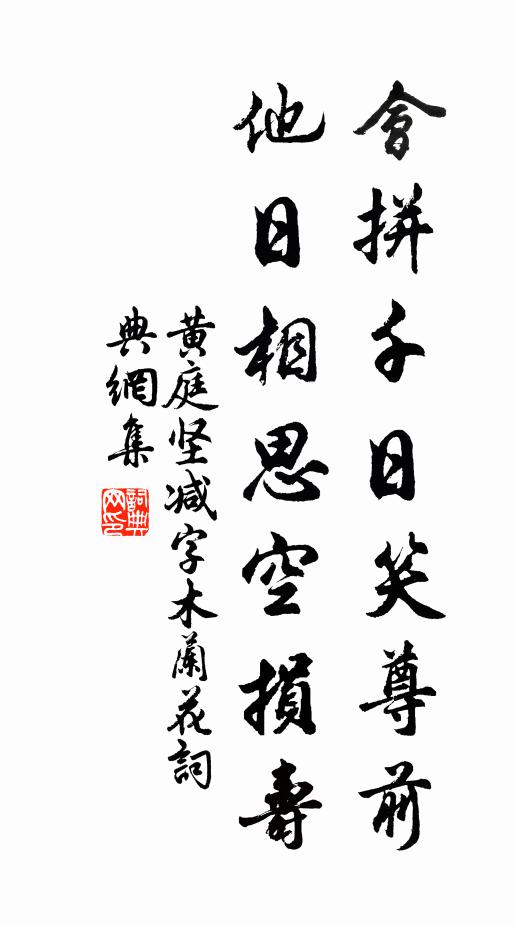 會拼千日笑尊前
他日相思空損壽
黄庭坚减字木蘭花詞
典網集
詞典网印